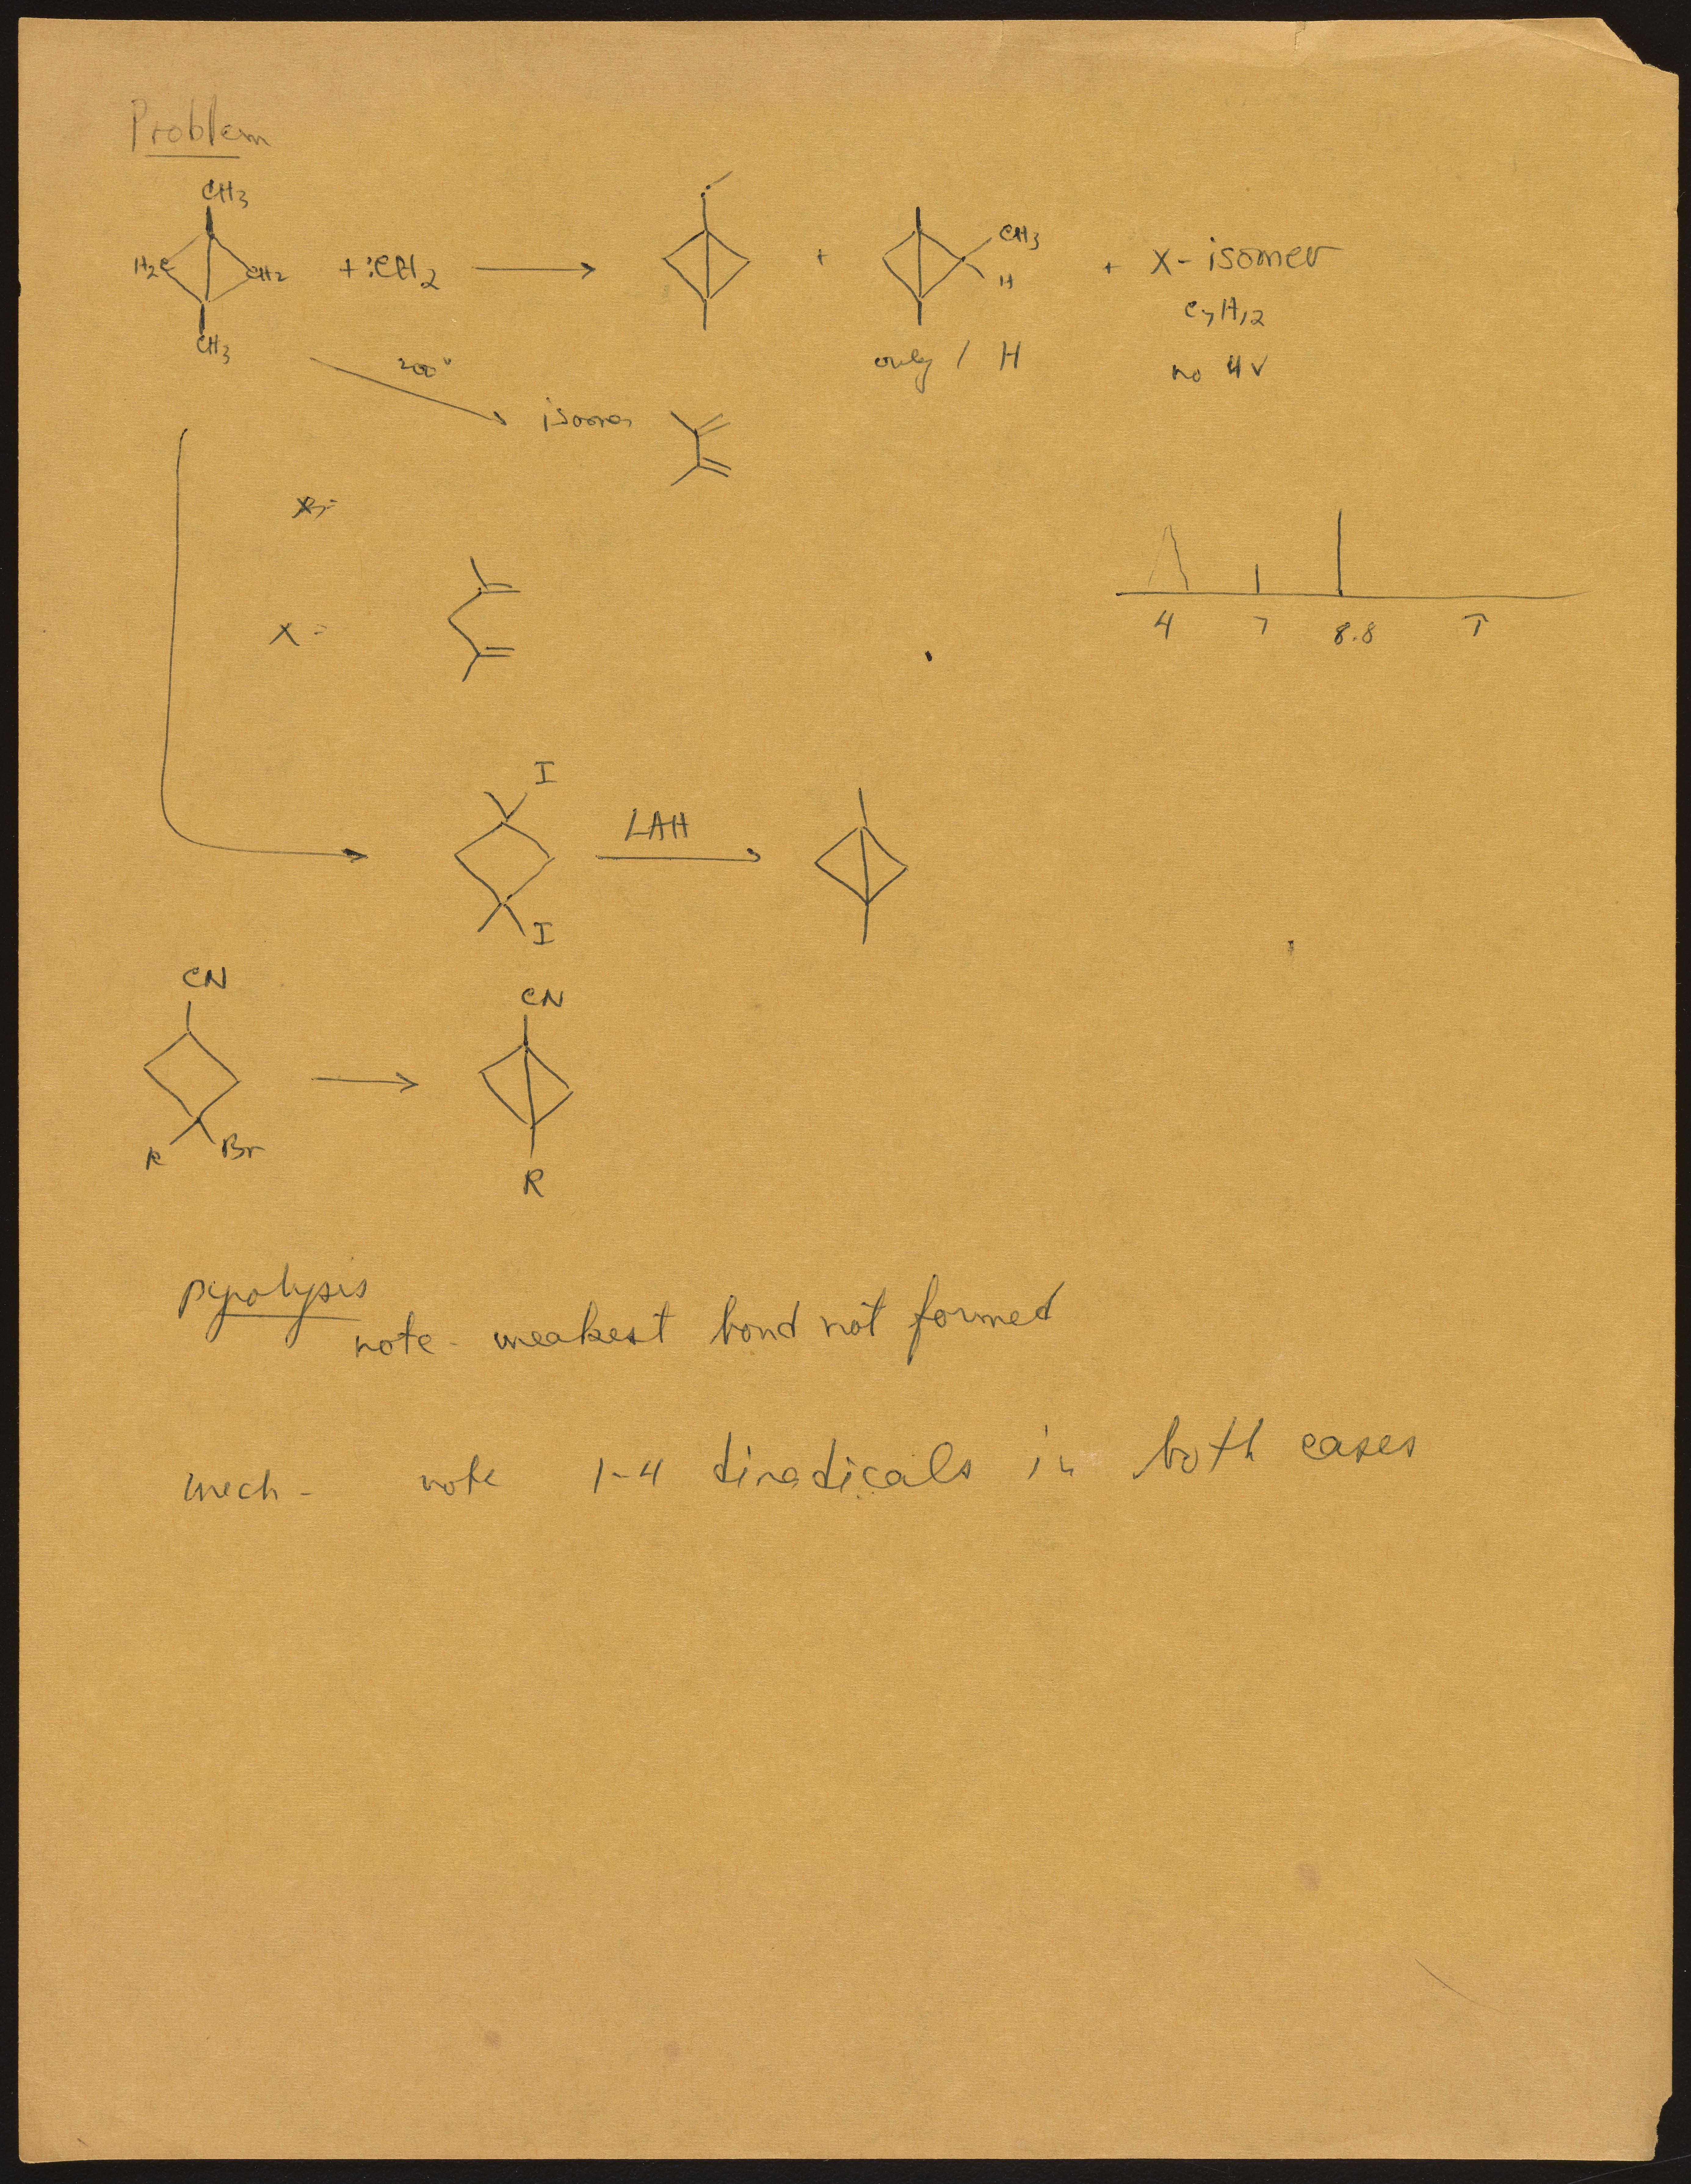 Problem
CH3
H2C CH2 + :CH2 + CH3 H + X - isomer
CH3
C7H12
only 1 H
no UV
200°
isomer
X =
4 7 8.8 τ
I
LAH
I
CN CN
R Br
R
pyrolysis
note - weakest bond not formed
mech - note 1-4 diradicals in both cases